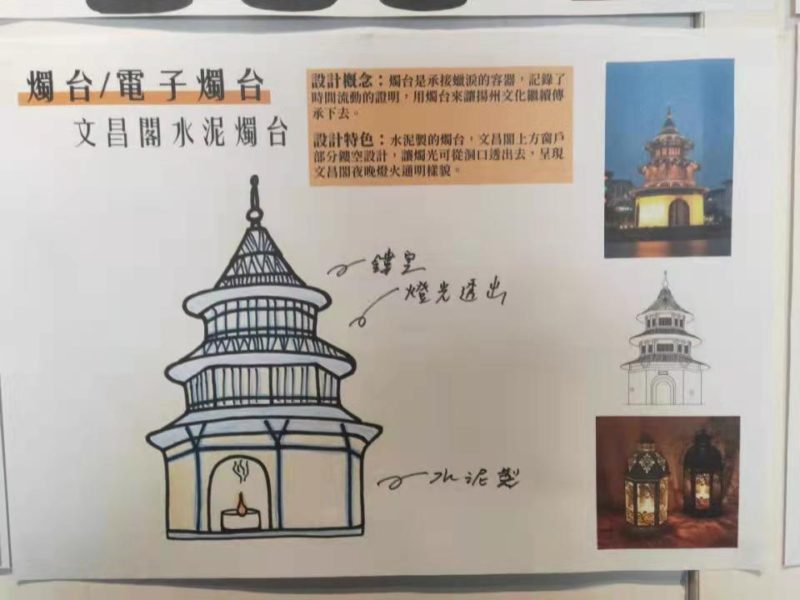 燭台/電子燭台
文昌閣水泥燭台
設計概念：燭台是承接蠟淚的容器，記錄了
時間流動的證明，用燭台來讓揚州文化繼續傳
承下去。
設計特色：水泥製的燭台，文昌閣上方窗戶
部分鏤空設計，讓燭光可從洞口透出去，呈現
文昌閣夜晚燈火通明樣貌。
鏤空
燈光透出
水泥製